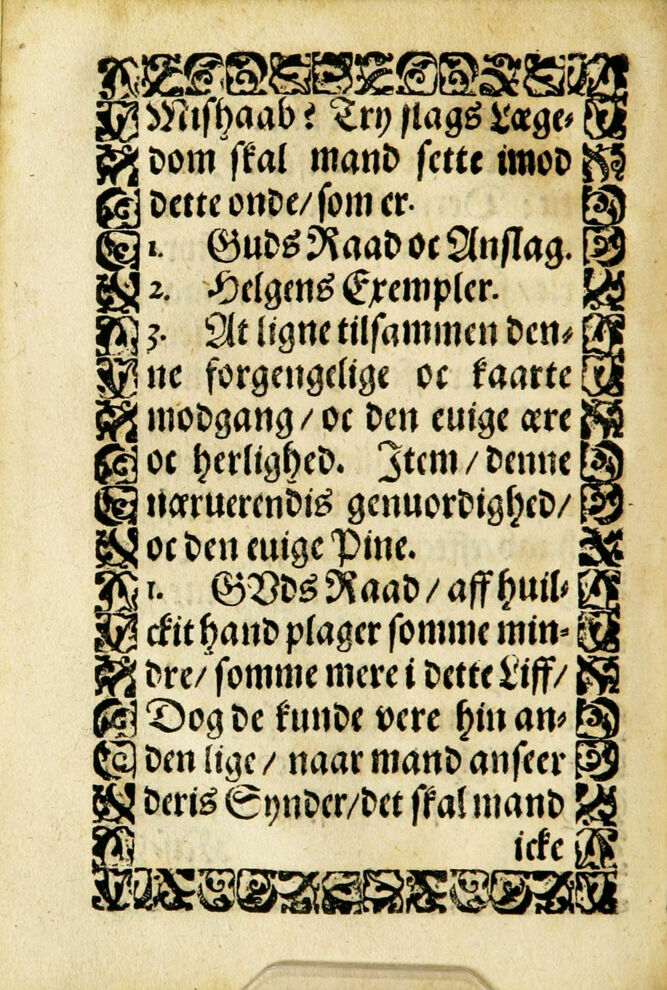 Mishaab? Try slags Læge-
dom skal mand sette imod
dette onde/ som er.
1. Guds Raad oc Anslag.
2. Helgens Exempler.
3. At ligne tilsammen den-
ne forgengelige oc kaarte
modgang/ oc den euige ære
oc herlighed. Item/ denne
næruerendis genuordighed/
oc den euige Pine.
1. GVds Raad/ aff huil-
ckit hand plager somme min-
dre/ somme mere i dette Liff/
Dog de kunde vere hin an-
den lige/ naar mand anseer
deris Synder/ det skal mand
icke